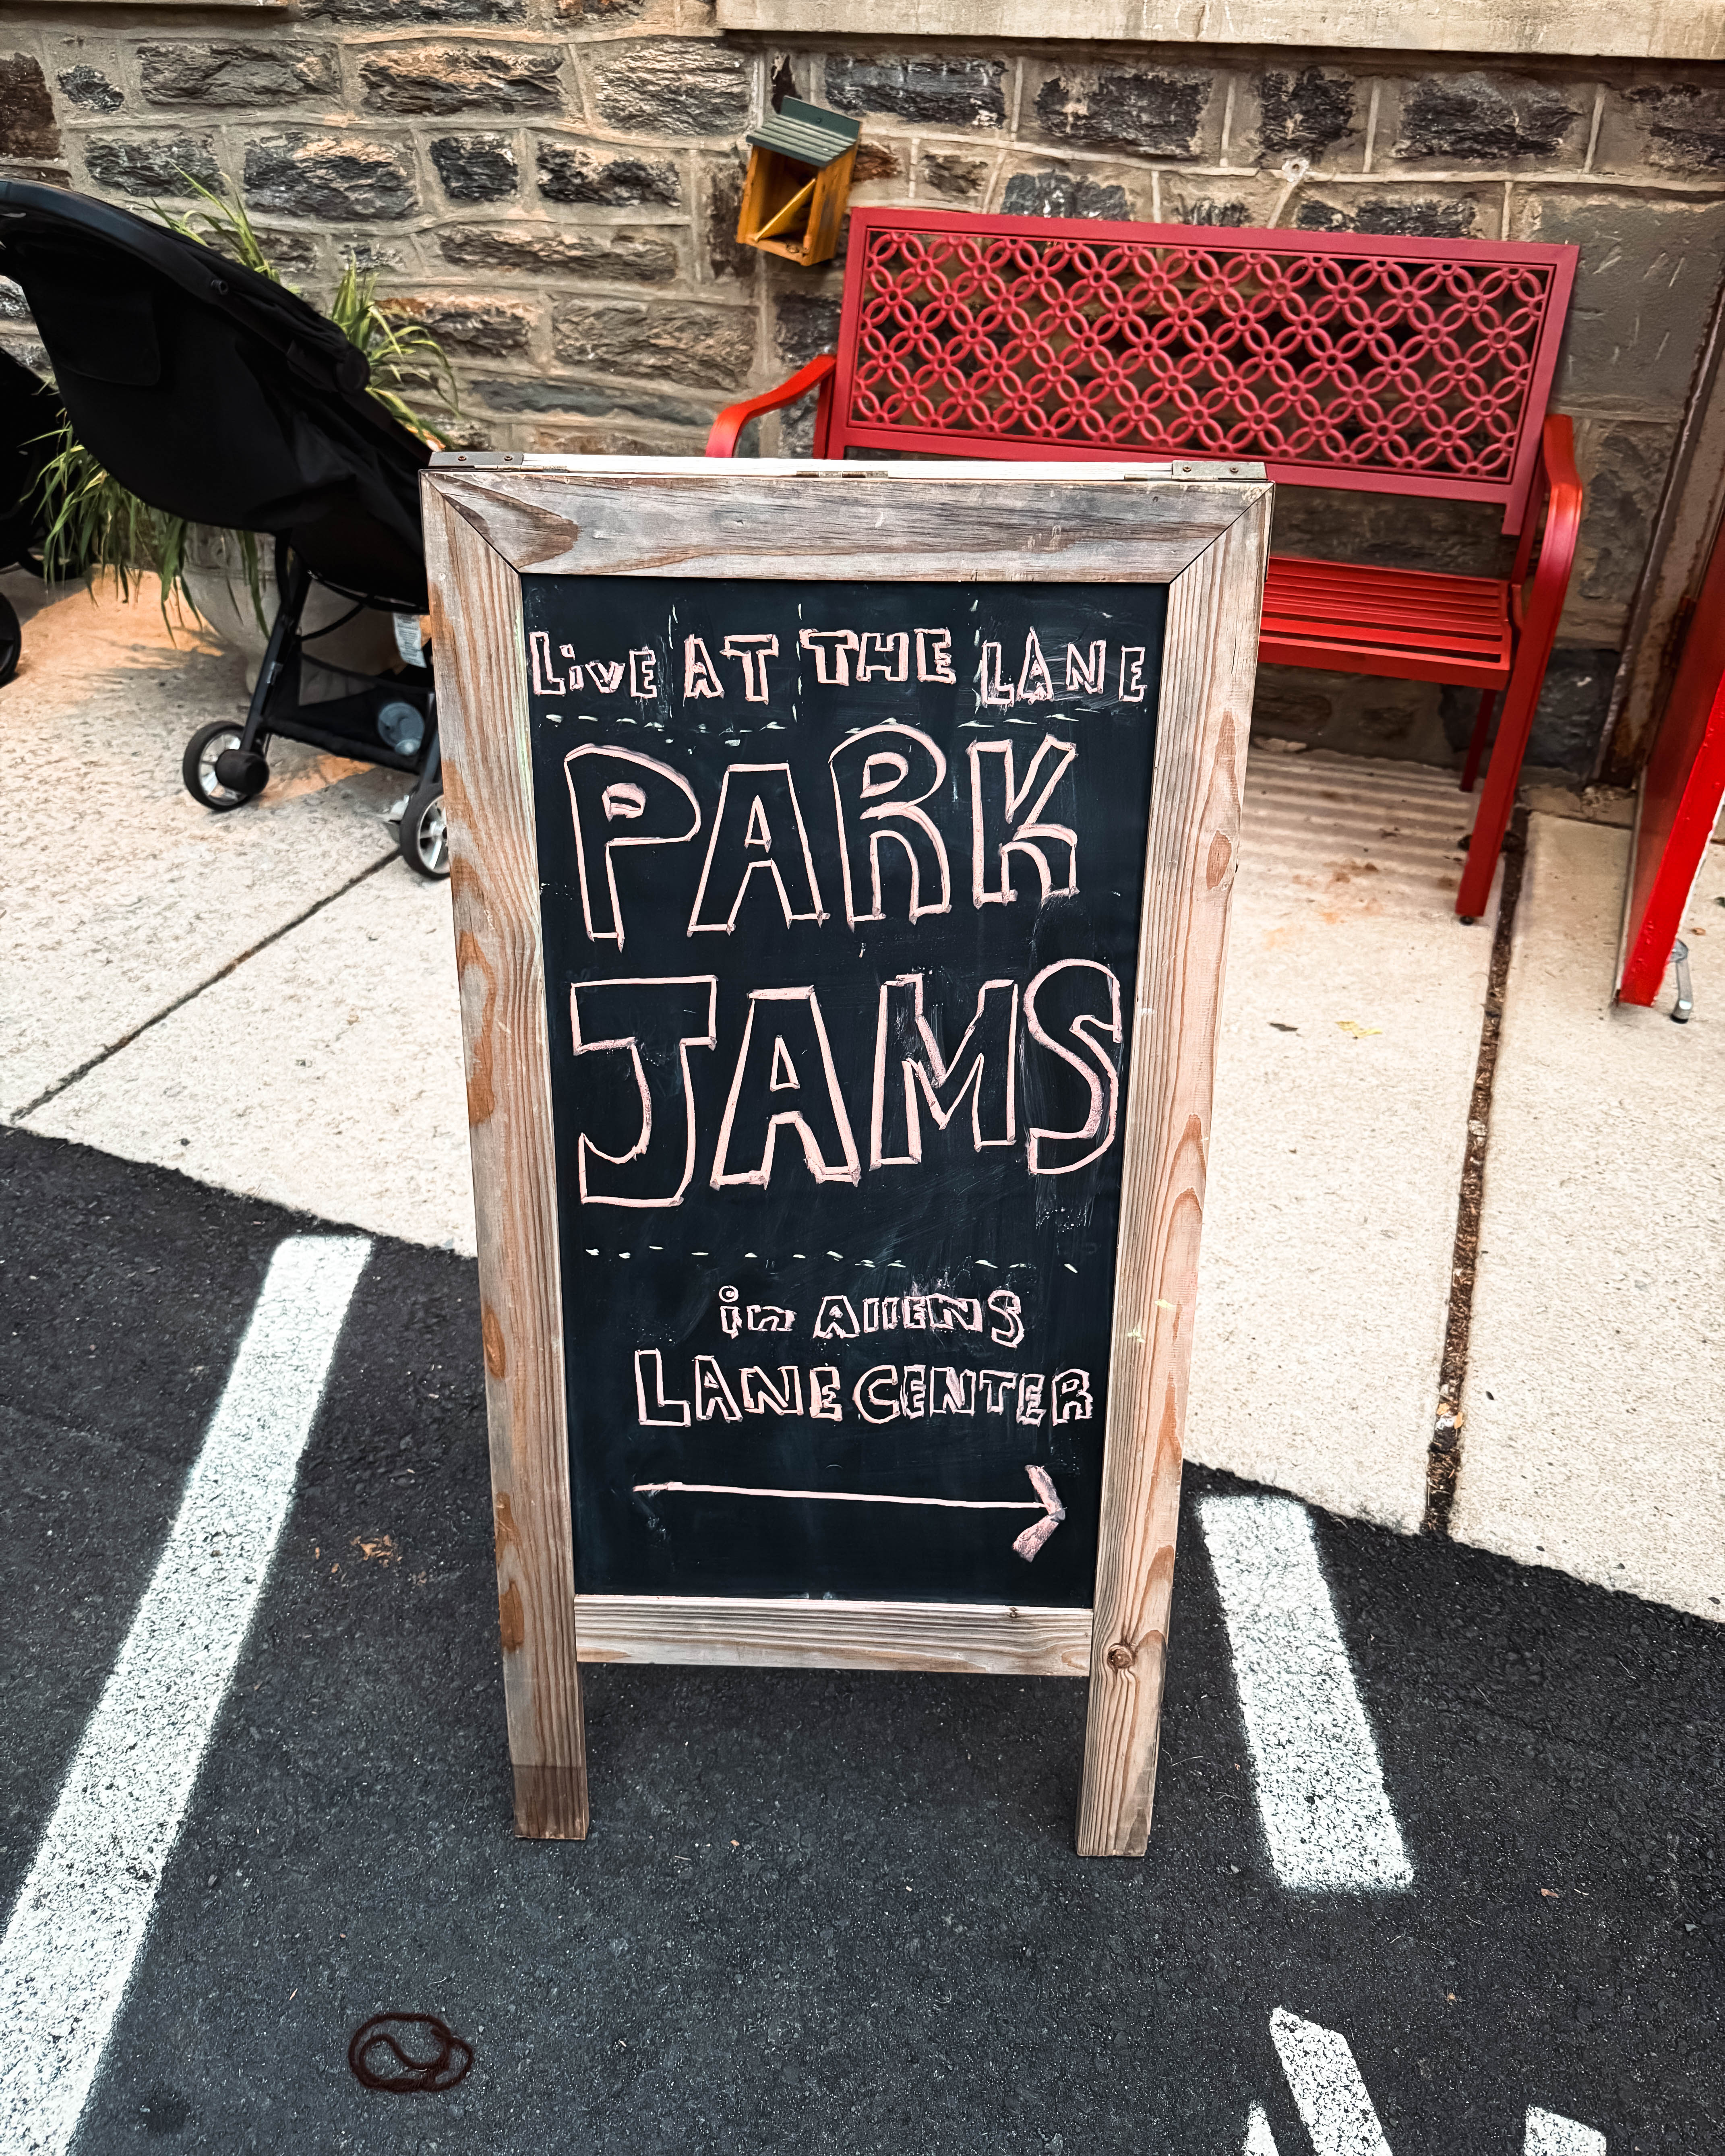 LivE AT THE LANE
PARK
JAMS
in AllENS
LANE CENTER